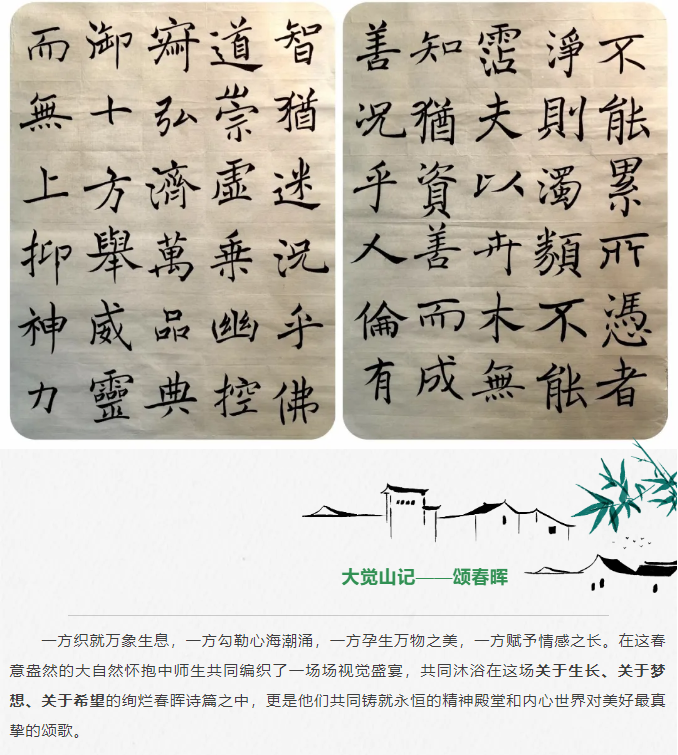 智猶迷況乎佛
道崇虛乘幽控
寂弘濟萬品典
御十方舉威靈
而無上抑神力
不能累所憑者
淨則濁類不能
霑夫以卉木無
知猶資善而成
善況乎人倫有
大觉山记——颂春晖
一方织就万象生息，一方勾勒心海潮涌，一方孕生万物之美，一方赋予情感之长。在这春
意盎然的大自然怀抱中师生共同编织了一场场视觉盛宴，共同沐浴在这场关于生长、关于梦
想、关于希望的绚烂春晖诗篇之中，更是他们共同铸就永恒的精神殿堂和内心世界对美好最真
挚的颂歌。